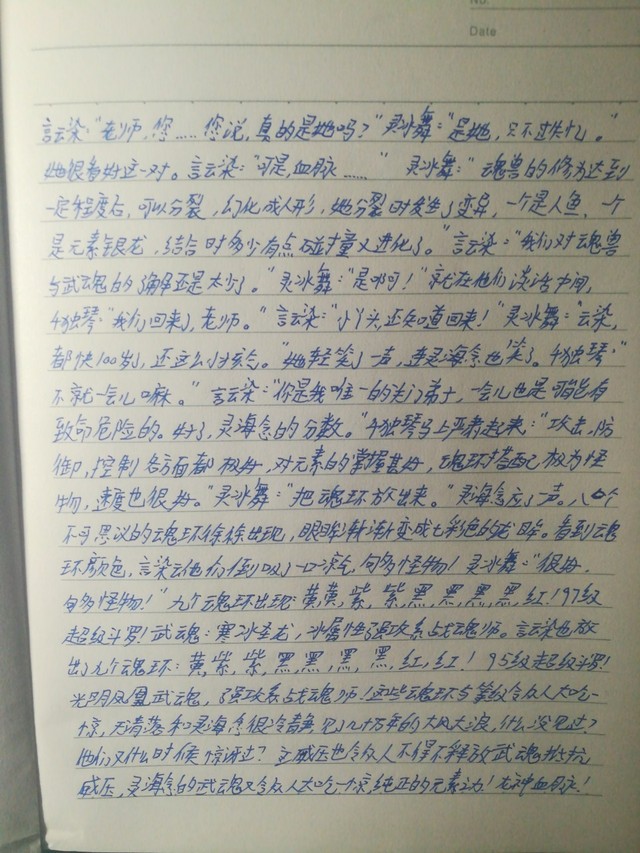 No.
Date
言云染：“老师，您……您说，真的是她吗？”灵冰舞：“是她，只不过失忆。”
她很看好这一对。言云染：“可是，血脉……”灵冰舞：“魂兽的修为达到
一定程度后，可以分裂，幻化成人形，她分裂时发生了变异，一个是人鱼，一个
是元素银龙，结合时多少有点碰撞又进化了。”言云染：“我们对魂兽
与武魂的了解还是太少了。”灵冰舞：“是啊！”就在他们谈话中间，
千独琴：“我们回来了，老师。”言云染：“小丫头，还知道回来！”灵冰舞：“云染，
都快100岁了，还这么小孩气。”她轻笑了一声，连灵海念也笑了。千独琴：“
不就一会儿嘛。”言云染：“你是我唯一的关门弟子，一会儿也是可能有
致命危险的。好了，灵海念的分数。”千独琴马上严肃起来：“攻击，防
御，控制各方面都极好，对元素的掌握甚好，魂环搭配极为怪
物，速度也很好。”灵冰舞：“把魂环放出来。”灵海念应了一声。八个
不可思议的魂环徐徐出现，眼眸渐渐变成七彩色的龙眸。看到魂
环颜色，言云染他们倒吸了一口凉气，句多怪物！灵冰舞：“很好，
句多怪物！”九个魂环出现：黄，黄，紫，紫，黑，黑，黑，黑，红！97级
超级斗罗！武魂：寒冰圣龙，冰属性强攻系战魂师。言云染也放
出了九个魂环：黄，紫，紫，黑，黑，黑，黑，红，红！95级超级斗罗！
光明凤凰武魂，强攻系战魂师！这些魂环与等级令众人大吃一
惊，天清落和灵海念很冷静，见了几十万年的大风大浪，什么没见过？
他们又什么时候惊讶过？威压也令众人不得不释放武魂抵抗
威压，灵海念的武魂又令众人大吃一惊，纯正的元素之力！龙神血脉！